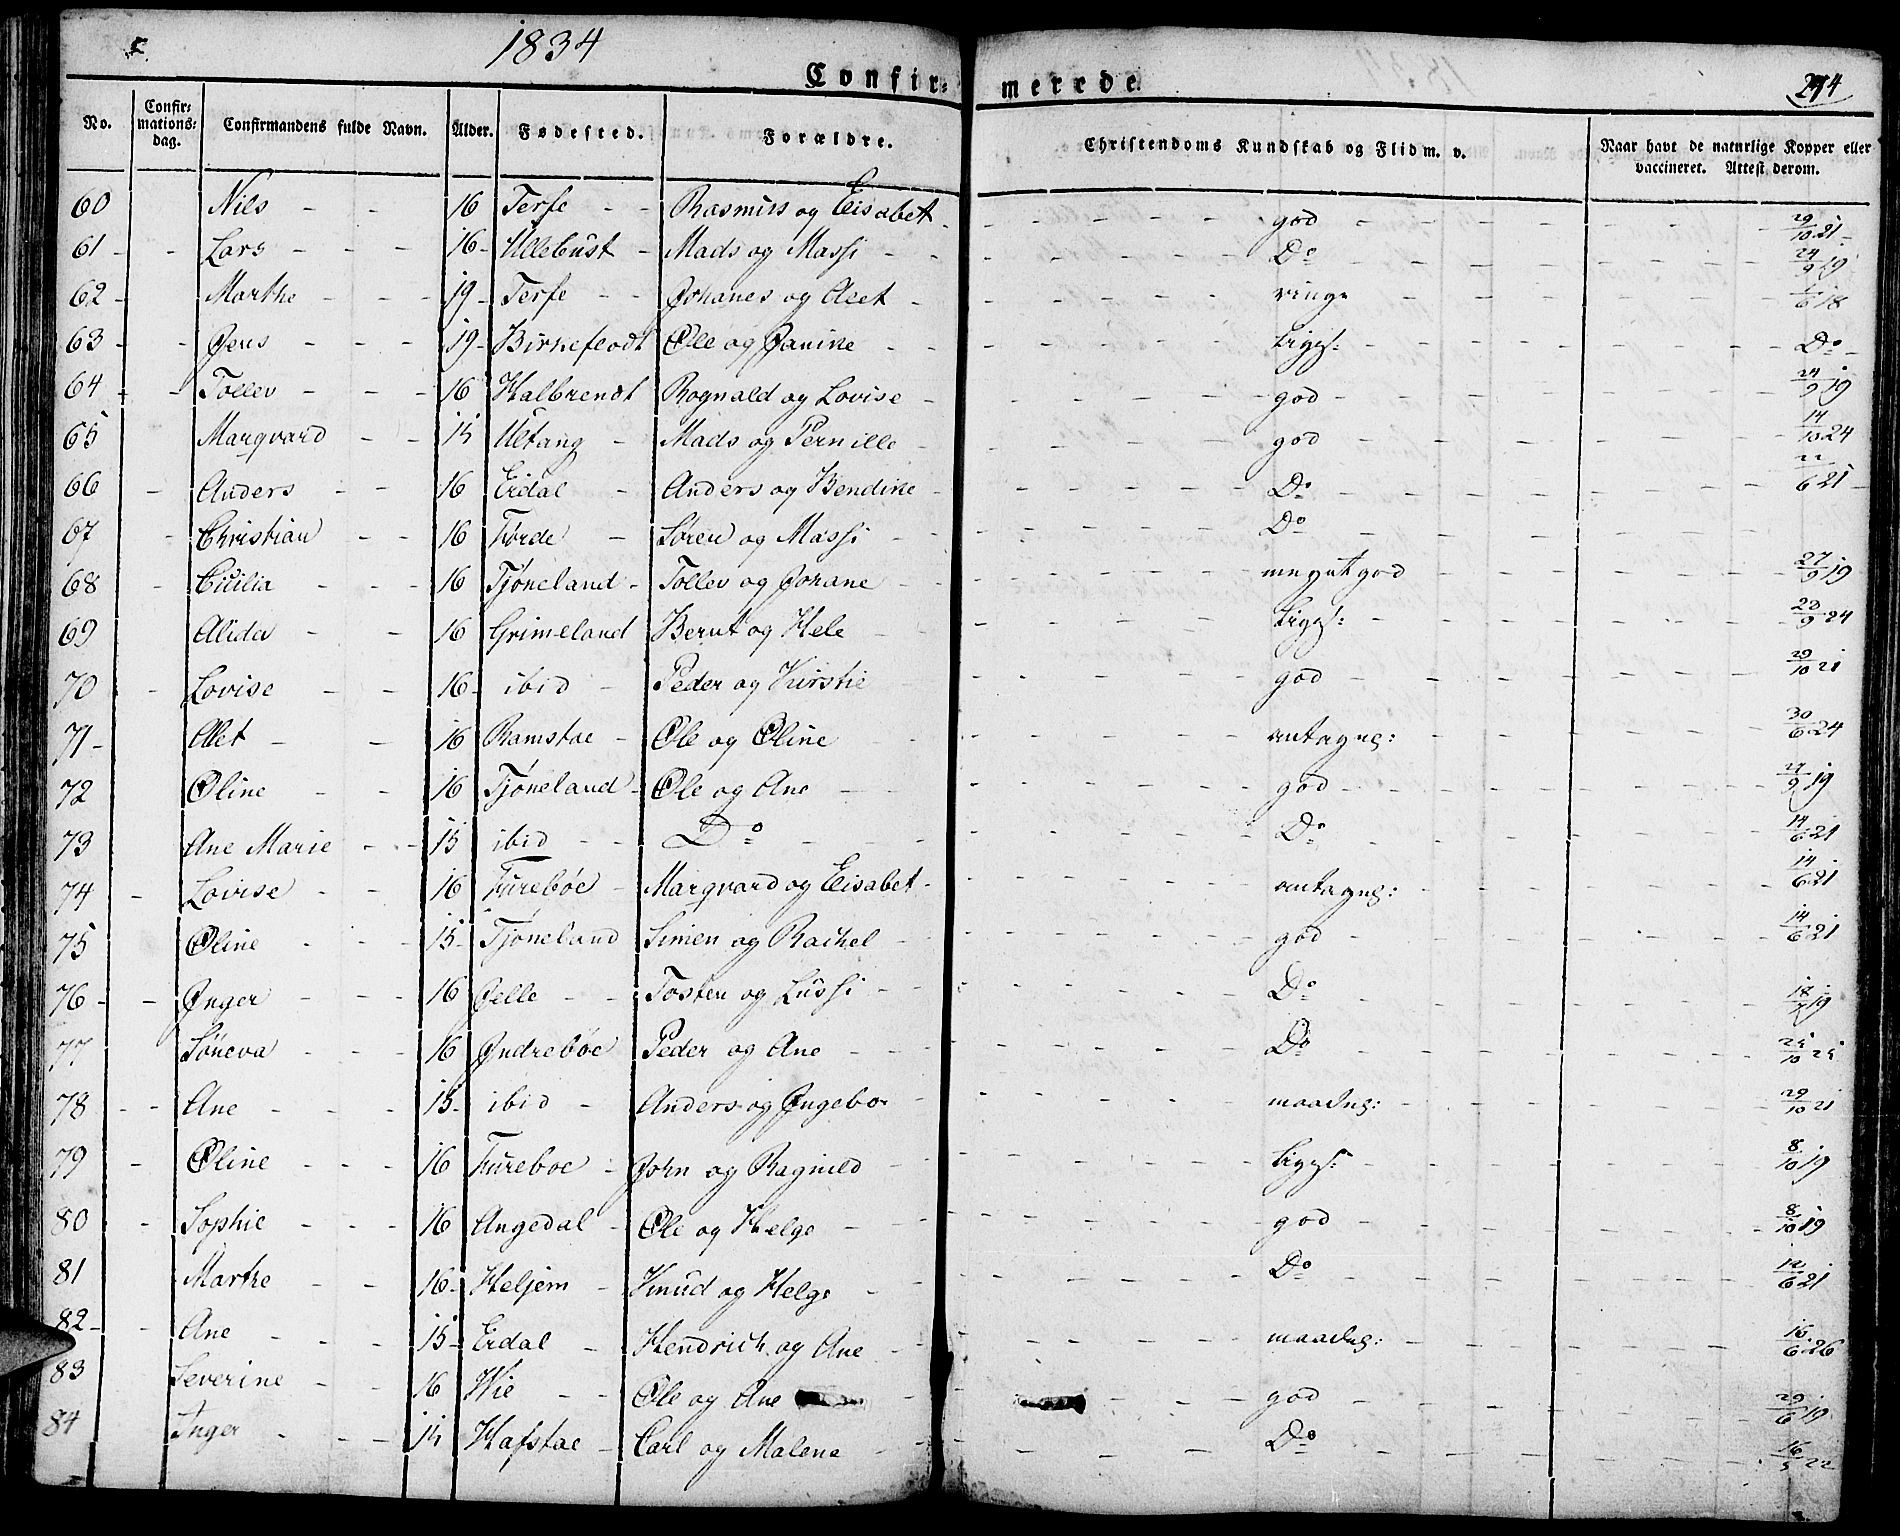 1834
Confir= merede 274
No. Confir= mations= dag. Confirmandens fulde Navn. Alder. Fødested. Forældre. Christendoms Kundskab og Flid m. v. Naar havt de naturlige Kopper eller vaccineret. Attest derom.
60 Nils - - 16 Terfe - - Rasmus og Elisabet - god - 29/10 21
61 - - Lars - - - 16 - Ullebust - Mads og Massi - - Do 24/9 19
62 - Marthe - - - 19 - Terfe - - Johanes og Alet - ringe 18
63 - - Jens - - - 19 - Birkeflodt Ole og Janike - - Do
64 - - Tollev - - - 16 Halbrendt Rognald og Lovise - god - 24/9 19
65 Marqvard - - 15 Ultang - Mads og Pernille - god 14/10 24
66 - Anders - - 16 Erdal - Anders og Bendike - Do 6 21
67 - Christian - - 16 Førde - Søren og Massi - - Do
68 - Cicilia - - - 16 Tjøneland - Tollev og Johane - - meget god 27/9 19
69 Alida - - 16 Grimeland Bernt og Hele - 9 24
70 - Lovise - - 16 - ibid - Peder og Kirstie god 29/10 21
71 - Alet - - 16 Ramstae - Ole og Oline antagel: 30/6 24
72 Oline - - 16 Tjøneland - Ole og Ane - god 27/9 19
73 Ane Marie - - 15 ibid - - Do - Do 14/6 21
74 - Lovise - - 16 Furebøe - Marqvard og Elisabet - antagel: 14/6 21
75 Oline - - - 15 - Tjøneland Simen og Rachel - god 14/6 21
76 - - Inger - - - 16 Jelle - - Tosten og Lussi - - Do 19
77 Søneva - - - 16 Indrebøe Peder og Ane - - - Do 25/10 25
78 - - Ane - - - - 15 - ibid - Anders og Ingebor - maadel: 29/10 21
79 - Oline - - - 16 Fureboe - John og Ragnild - - 8/10 19
80 - Sophie - - - 16 Angedal - Ole og Helge - god 8/10 19
81 Marthe - - 16 - Heljem - Knud og Helge - Do 12/6 21
82 - - Ane - - - 15 - Erdal - Hendrich og Ane - - maadel: 16/6 26
83 Severine - - 16 Hie - - Ole og Ane god 29/6 19
84 Inger - - - 15 Hafstae - Carl og Malene Do 16/5 22